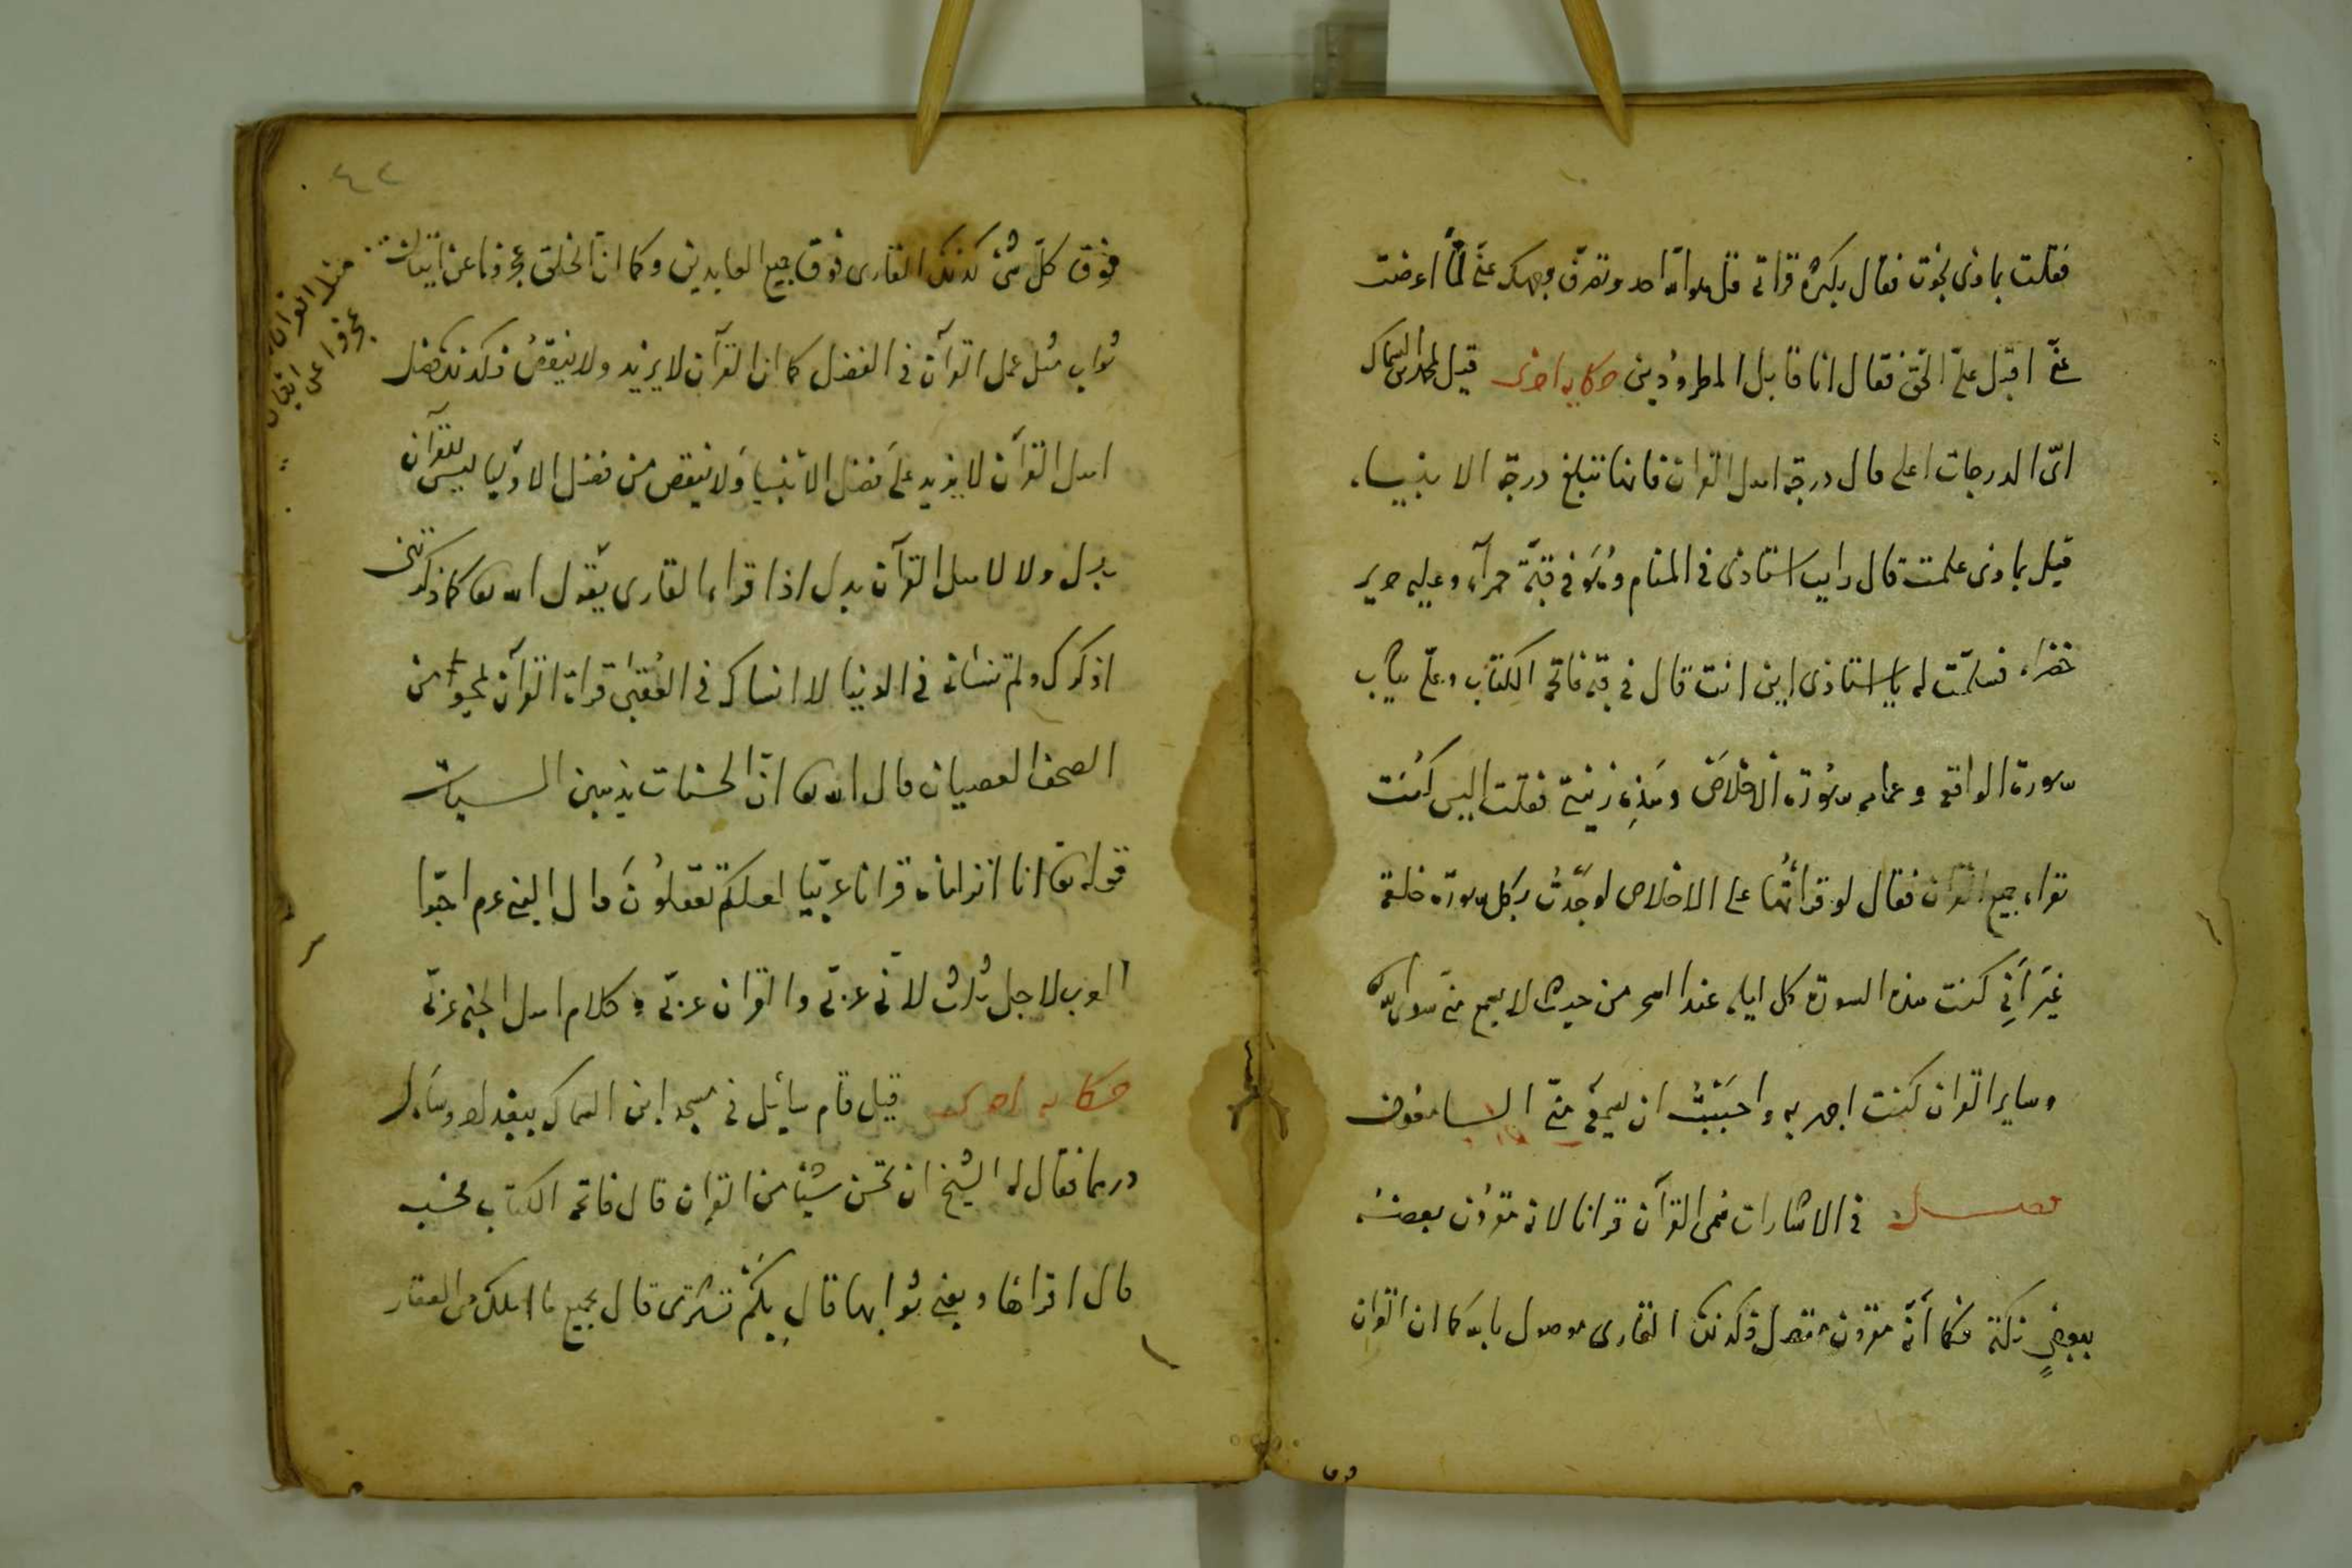 فقلت بماذى نجوت فقال بكثرة قراتى قل هو الله احد وتصرف وجهك عنى لما اعرضت
عنى اقبل علىّ الحق فقال انا قابل المطرودين حكايه اخرى قيل لمحمد بن السماك
اىّ الدرجات اعلى قال درجة اهل القران فانها تبلغ درجة الانبياء
قيل بماذى علمت قال رايت استاذى فى المنام وهو فى قبّة حمرآء وعليه حرير
خضراء فسلمّت له يا استاذى اين انت قال فى قبة فاتحة الكتاب وعلىّ ثياب
سورة الواقعه وعمامه سورة الاخلاص وهذه زينتى فقلت اليس كنت
تقراء جميع القران فقال لو قرأتها على الاخلاص لوجدت بكل سورة خلعة
غير أنى كنت هذه السورة كل ليله عند السحر من حيث لا يسمع منى سوى الله
وساير القران كنت اجهر به واحببت ان يسمع منى السامعون
فصل فى الاشارات سمى القرآن قرانا لانه مقرون بعضه
ببعضٍ نكتة فكما أنّه مقرون متصل فكذلك القارى موصول بالله كما ان القران
فوق
٤٢
فوق كلّ شئ كذلك القارى فوق جميع العابدين وكما ان الخلق عجزوا عن اتيان
مثل القران عجزوا عن اتيان
ثواب مثل عمل القرآن فى الفضل كما ان القرآن لا يزيد ولا ينقص فكذلك فضل
اهل القرآن لا يزيد على فضل الانبيا ولا ينقص من فضل الاوليا ليس للقرآن
بدل ولا لاهل القرآن بدل اذا قراء القارى يقول الله تعا كما ذكرتنى
اذكرك ولم تنسانى فى الدنيا لا انساك فى العقبى قراة القرآن تمحوا من
الصحف العصيان قال الله تعا انّ الحسنات يذهبن السيات
قوله تعا انا انزلناه قرانا عربيّا لعلكم تعقلون قال النبى عم احبّوا
العرب لاجل ثلاث لانّى عربّى والقران عربّى وكلام اهل الجنه عربّى
حكايه اخرى قيل قام سائل فى مسجد ابن السماك ببغداد وسأل
درهما فقال له الشيخ ان تحسن شيئا من القران قال فاتحة الكتاب فحسب
قال اقراها وبعنى ثوابها قال بكم تشترى قال بجميع ما املك من العقار